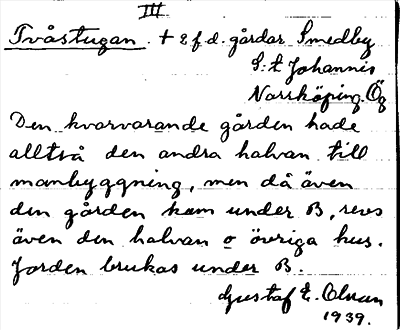 III
Tvåstugan. + 2 f.d. gårdar Smedby
S:t Johannis
Norrköping. Ög
Den kvarvarande gården hade
alltså den andra halvan till
manbyggning, men då även
den gården kom under B, revs
även den halvan o övriga hus.
Jorden brukas under B.
Gustaf E. Olsson
1939.